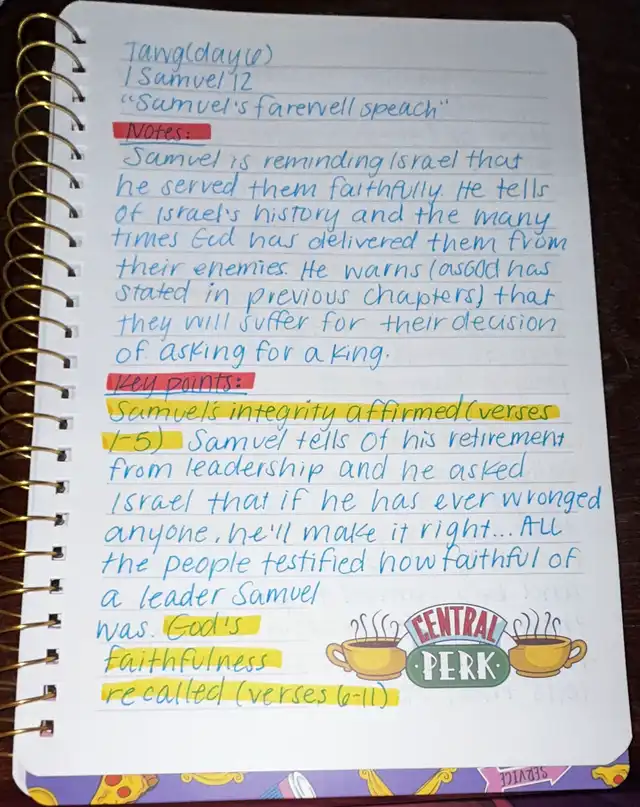 Jawg(day 6)
1 Samuel 12
"Samuel's farewell speach"
Notes:
Samuel is reminding Israel that
he served them faithfully. He tells
of Israel's history and the many
times God has delivered them from
their enemies. He warns (as GOD has
stated in previous chapters) that
they will suffer for their decision
of asking for a king.
Key points:
Samuel's integrity affirmed (verses
1-5) Samuel tells of his retirement
from leadership and he asked
Israel that if he has ever wronged
anyone, he'll make it right... All
the people testified how faithful of
a leader Samuel
was. God's
faithfulness
recalled (verses 6-11)
CENTRAL
PERK
SERVICE